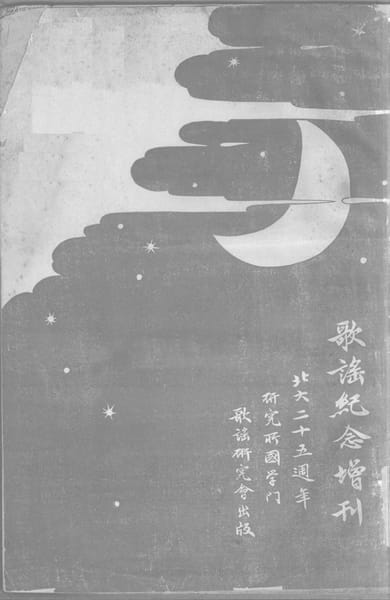 歌謠紀念增刊
北大二十五週年
研究所國学门
歌謠研究會出版